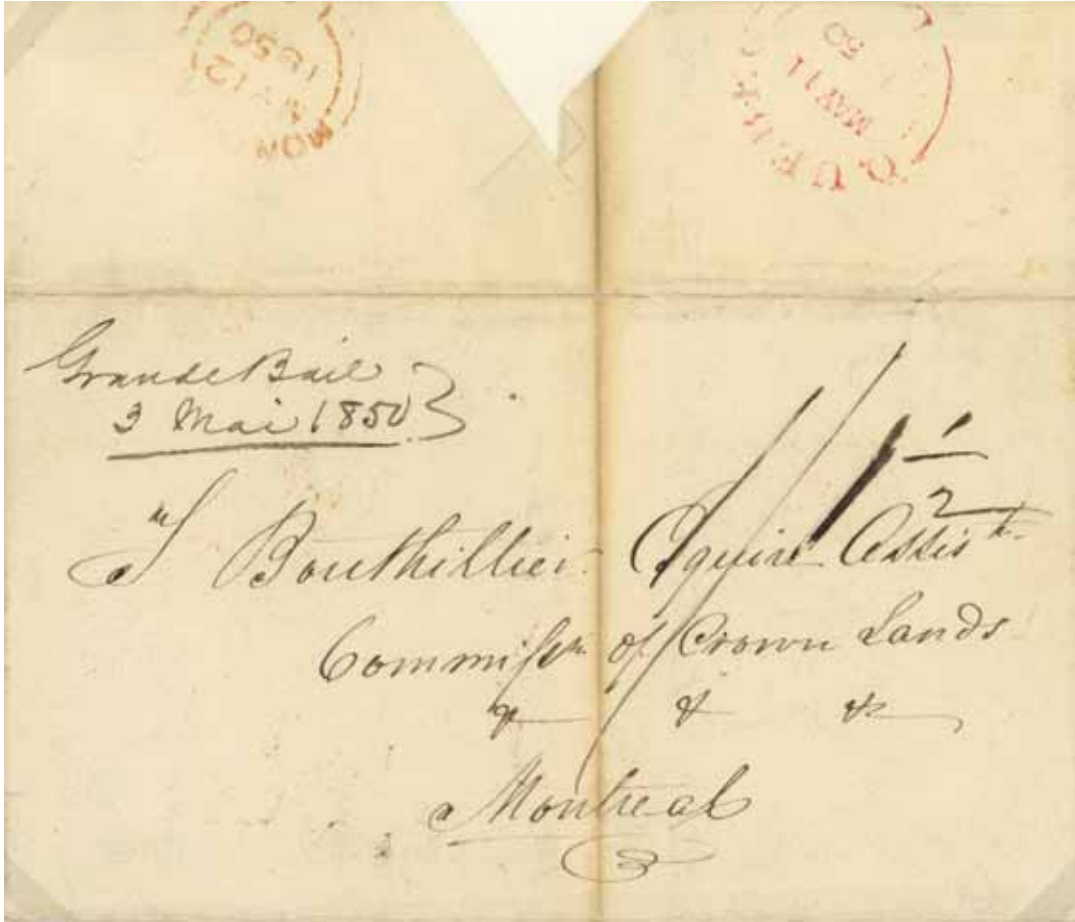 MON
12
1850
QUEBEC
MAY 11
50
Grande Baie
3 Mai 1850
T Bouthillier Esquire Assist.
Commissr of Crown Lands
& & &c
Montreal